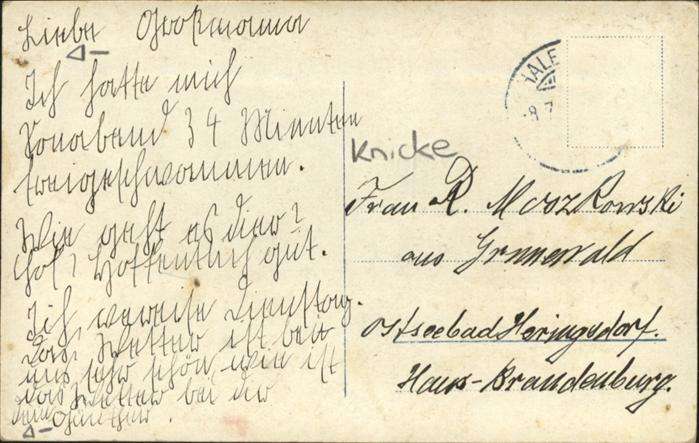 Liebe Großmama
Ich hatte mich
Sonabend 34 Minuten
freigeschwommen.
Wie geht es dier?
Hoffentlich gut.
Ich verreise Dienstag.
Das Wetter ist bei
uns sehr schön, wie ist
das Wetter bei dir
dein Günther.
ALE
8.7
Knicke
Frau R. Moszkowski
aus Grunewald
Ostseebad Heringsdorf.
Haus-Brandenburg.